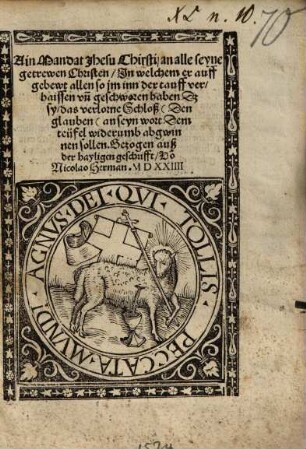 XL n. 10.
70
Ain Mandat Jhesu Christi/ an alle seyne
getrewen Christen/ Jn welchem er auff
gebewt allen so jm inn der tauff ver/
haissen vn̄ geschworen haben Dz
sy/ das verlorne Schloß/ Den
glauben/ an seyn wort Dem
teüfel widerumb abgwin
nen sollen. Gezogen auß
der hayligen geschrifft/ Vō
Nicolao Herman. M D XXIIII
AGNVS·DEI·QVI·TOLLIS·PECCATA·MVNDI·
1524